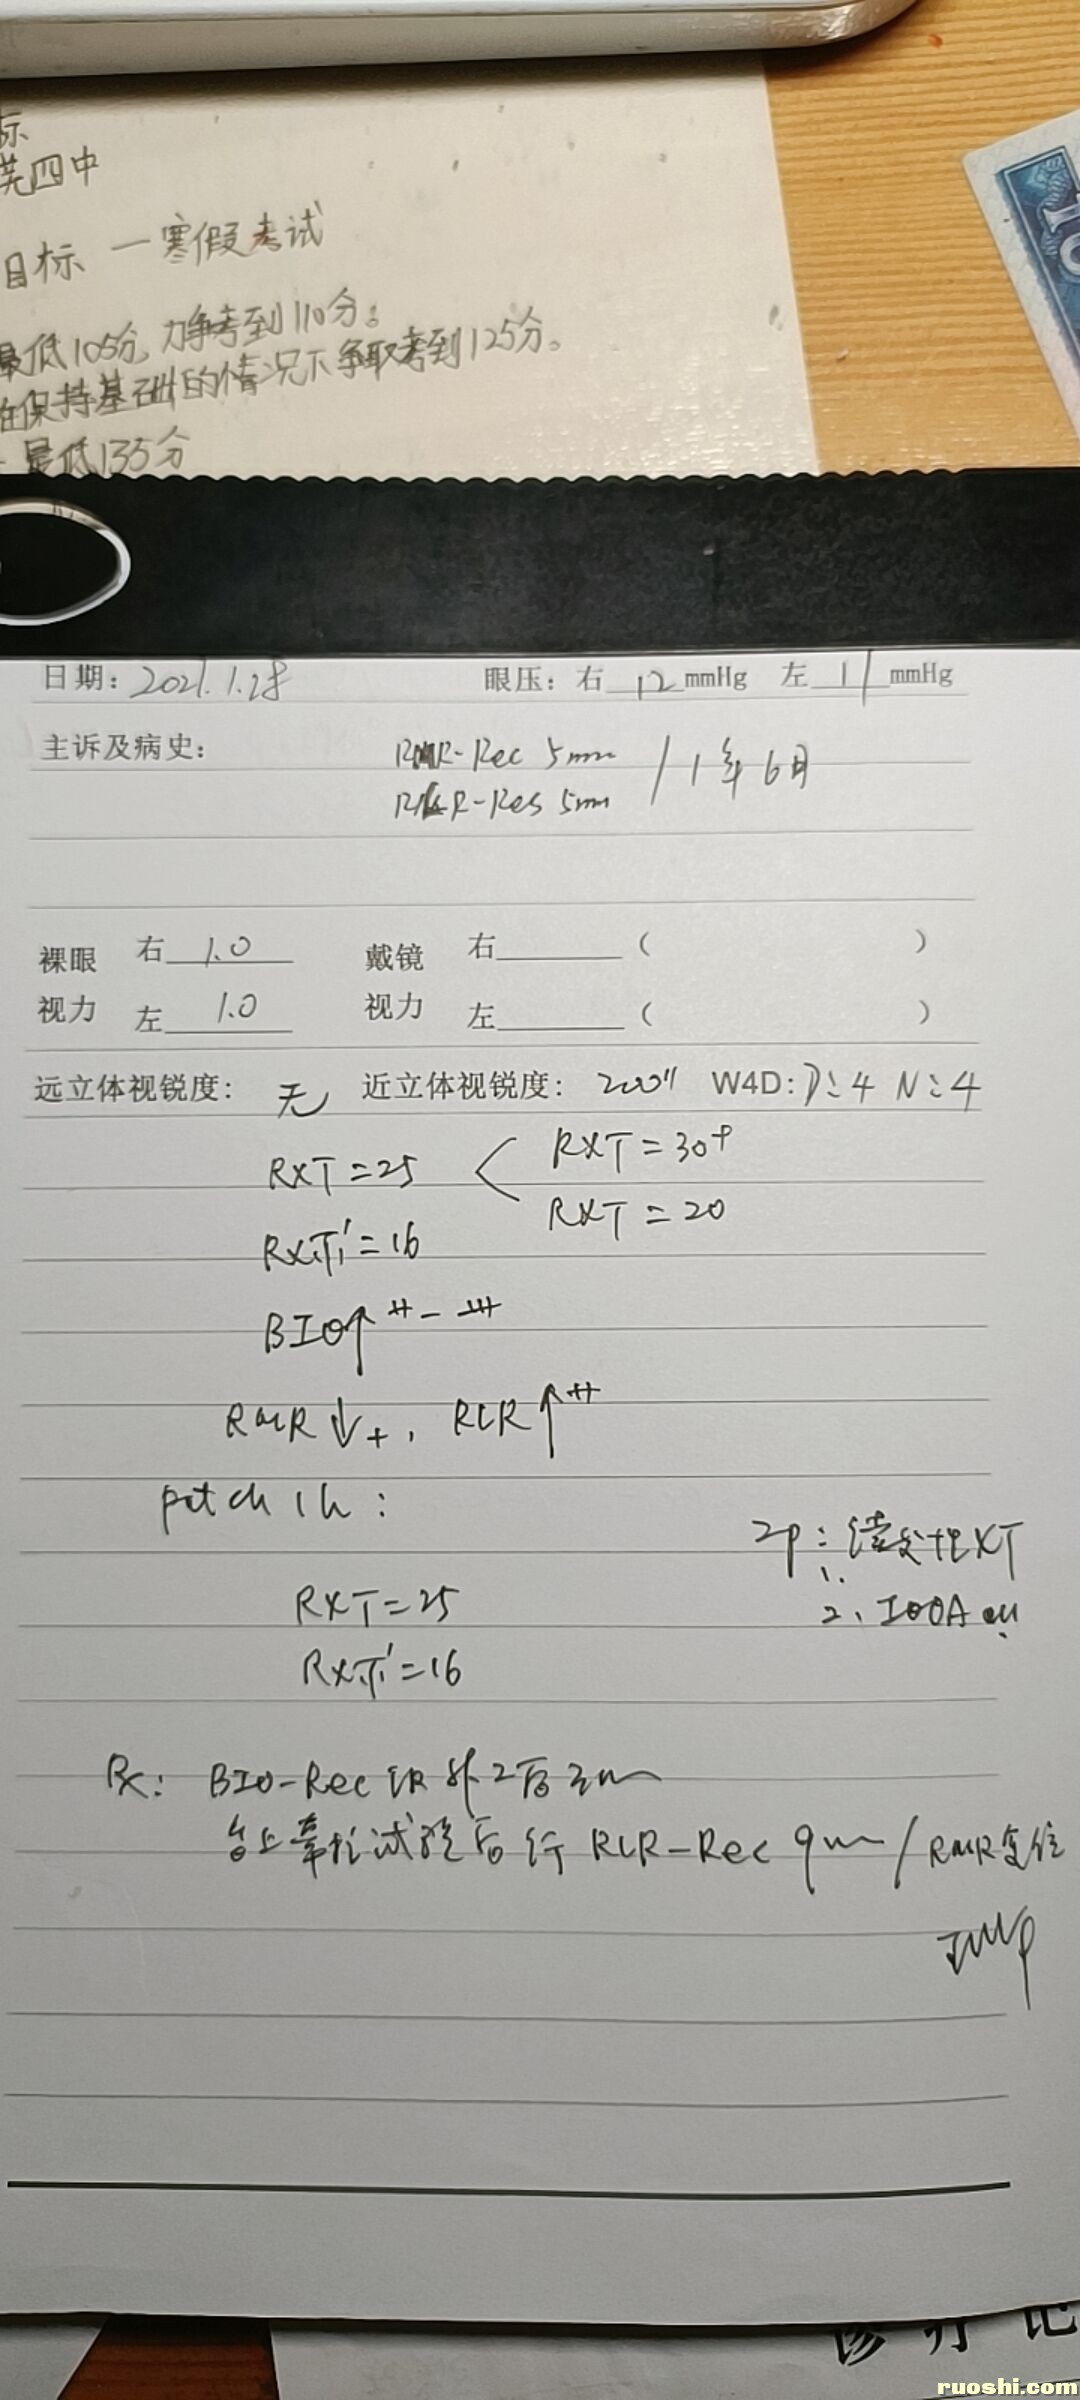 标
芜四中
目标 一寒假考试
最低105分,力争考到110分。
在保持基础的情况下争取考到125分。
最低135分
日期: 2021.1.28 眼压: 右 12 mmHg 左 11 mmHg
主诉及病史: RMR-Rec 5mm / 1年6月
RLR-Res 5mm
裸眼 右 1.0 戴镜 右 ( )
视力 左 1.0 视力 左 ( )
远立体视锐度: 无 近立体视锐度: 200" W4D: D:4 N:4
RXT=25 < RXT=30+
RXT=20
RXT'=16
BIO↑ ++ - +++
RMR↓+, RLR↑++
patch 1h:
RXT=25
RXT'=16
Zp: 1. 续发性XT
2. IOOA ou
Rx: BIO-Rec IR外2后3mm
台上牵拉试验后行 RLR-Rec 9mm / RMR复位
诊疗记
ruoshi.com